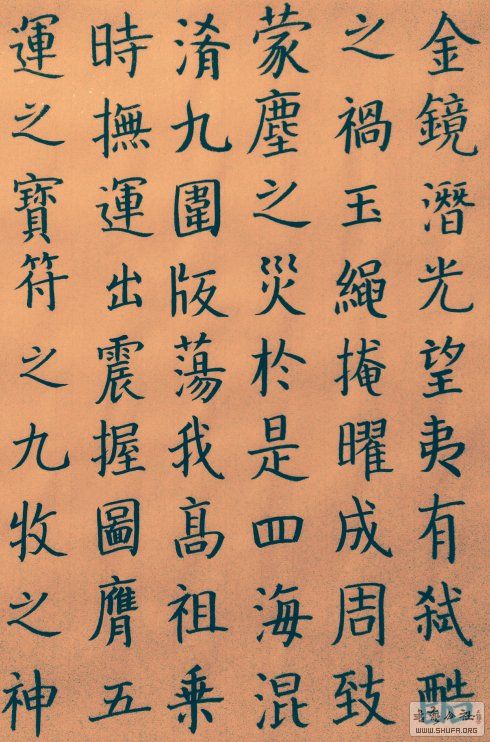 金鏡潛光望夷有弑酷
之禍玉繩掩曜成周致
蒙塵之災於是四海混
淆九圍版蕩我髙祖乗
時撫運出震握圖膺五
運之寶符之九牧之神
WWW.SHUFA.ORG